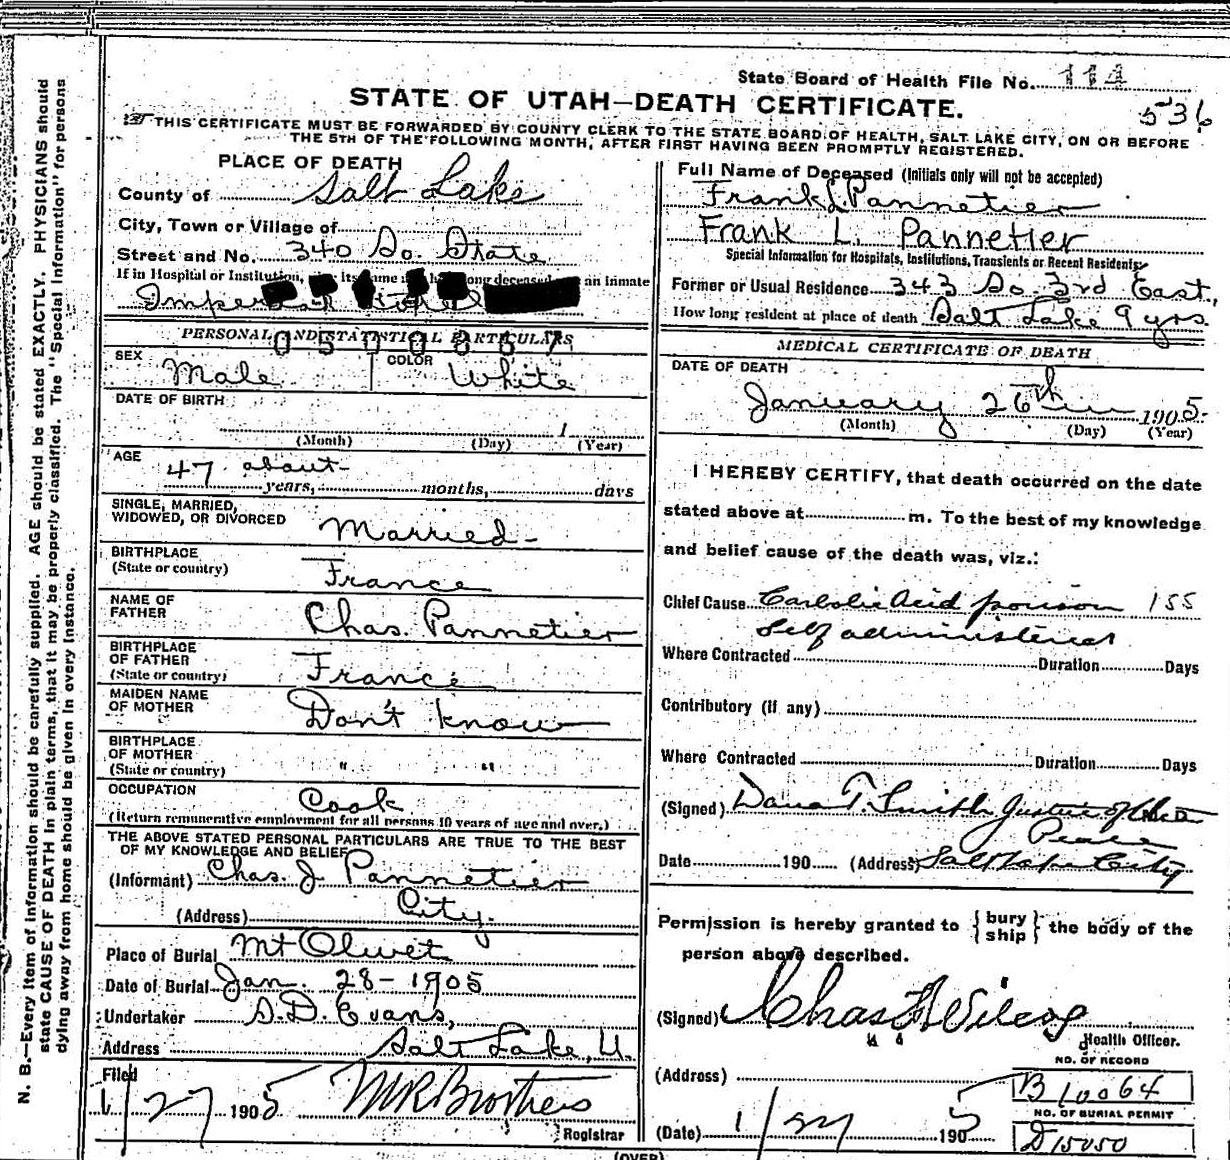 State Board of Health File No. 114
536
STATE OF UTAH—DEATH CERTIFICATE.
THIS CERTIFICATE MUST BE FORWARDED BY COUNTY CLERK TO THE STATE BOARD OF HEALTH, SALT LAKE CITY, ON OR BEFORE
THE 5TH OF THE FOLLOWING MONTH, AFTER FIRST HAVING BEEN PROMPTLY REGISTERED.
N. B.—Every item of information should be carefully supplied. AGE should be stated EXACTLY. PHYSICIANS should
state CAUSE OF DEATH in plain terms, that it may be properly classified. The "Special Information" for persons
dying away from home should be given in every instance.
PLACE OF DEATH
County of Salt Lake
City, Town or Village of
Street and No. 340 So. State
If in Hospital or Institution, its long an inmate
PERSONAL AND STATISTICAL PARTICULARS
0570867
SEX Male
COLOR White
DATE OF BIRTH
(Month) (Day) 1 (Year)
AGE
47 about
years, months, days
SINGLE, MARRIED,
WIDOWED, OR DIVORCED Married
BIRTHPLACE
(State or country) France
NAME OF
FATHER Chas. Pannetier
BIRTHPLACE
OF FATHER
(State or country) France
MAIDEN NAME
OF MOTHER Don't know
BIRTHPLACE
OF MOTHER
(State or country) " "
OCCUPATION Cook
(Return remunerative employment for all persons 10 years of age and over.)
THE ABOVE STATED PERSONAL PARTICULARS ARE TRUE TO THE BEST
OF MY KNOWLEDGE AND BELIEF
(Informant) Chas. J. Pannetier
(Address) City.
Place of Burial Mt Olivet
Date of Burial Jan. 28-1905
Undertaker S. D. Evans,
Address Salt Lake, U.
Filed
1/27 1905 M R Brothers
Registrar
Full Name of Deceased (Initials only will not be accepted)
Frank L. Pannetier
Frank L. Pannetier
Special Information for Hospitals, Institutions, Transients or Recent Residents
Former or Usual Residence 343 So. 3rd East,
How long resident at place of death Salt Lake 9 yrs.
MEDICAL CERTIFICATE OF DEATH
DATE OF DEATH
January 26th 1905.
(Month) (Day) (Year)
I HEREBY CERTIFY, that death occurred on the date
stated above at m. To the best of my knowledge
and belief cause of the death was, viz.:
Chief Cause Carbolic Acid poison 155
Self administered
Where Contracted Duration Days
Contributory (if any)
Where Contracted Duration Days
(Signed) Dana T. Smith Justice of the
Peace
Date 190 (Address) Salt Lake City
Permission is hereby granted to { bury
ship } the body of the
person above described.
(Signed) Chas Wilcox
Health Officer.
(Address)
NO. OF RECORD
B 10064
NO. OF BURIAL PERMIT
D 15050
(Date) 1/27 1905
(OVER)